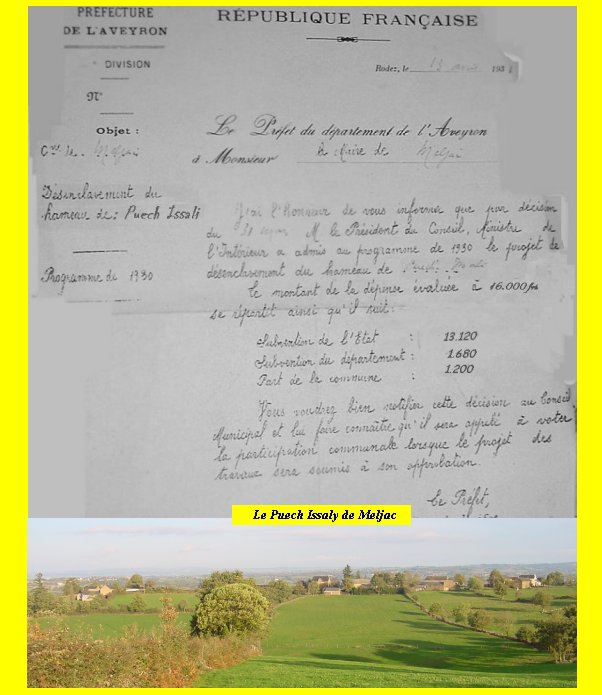 PRÉFECTURE
DE L'AVEYRON
DIVISION
Nº
Objet :
Cne de Meljac
Désenclavement du
hameau de : Puech Issali
Programme de 1930
RÉPUBLIQUE FRANÇAISE
Rodez, le 193
Le Préfet du département de l'Aveyron
à Monsieur le Maire de Meljac
J'ai l'honneur de vous informer que par décision
du 31 M. le Président du Conseil, Ministre de
l'Intérieur a admis au programme de 1930 le projet de
désenclavement du hameau de
Le montant de la dépense évaluée à 16.000 frs
se répartit ainsi qu'il suit :
Subvention de l'Etat : 13.120
Subvention du département : 1.680
Part de la commune : 1.200
Vous voudrez bien notifier cette décision au Conseil
Municipal et lui faire connaître qu'il sera appelé à voter
la participation communale lorsque le projet des
travaux sera soumis à son approbation.
Le Préfet,
Le Puech Issaly de Meljac